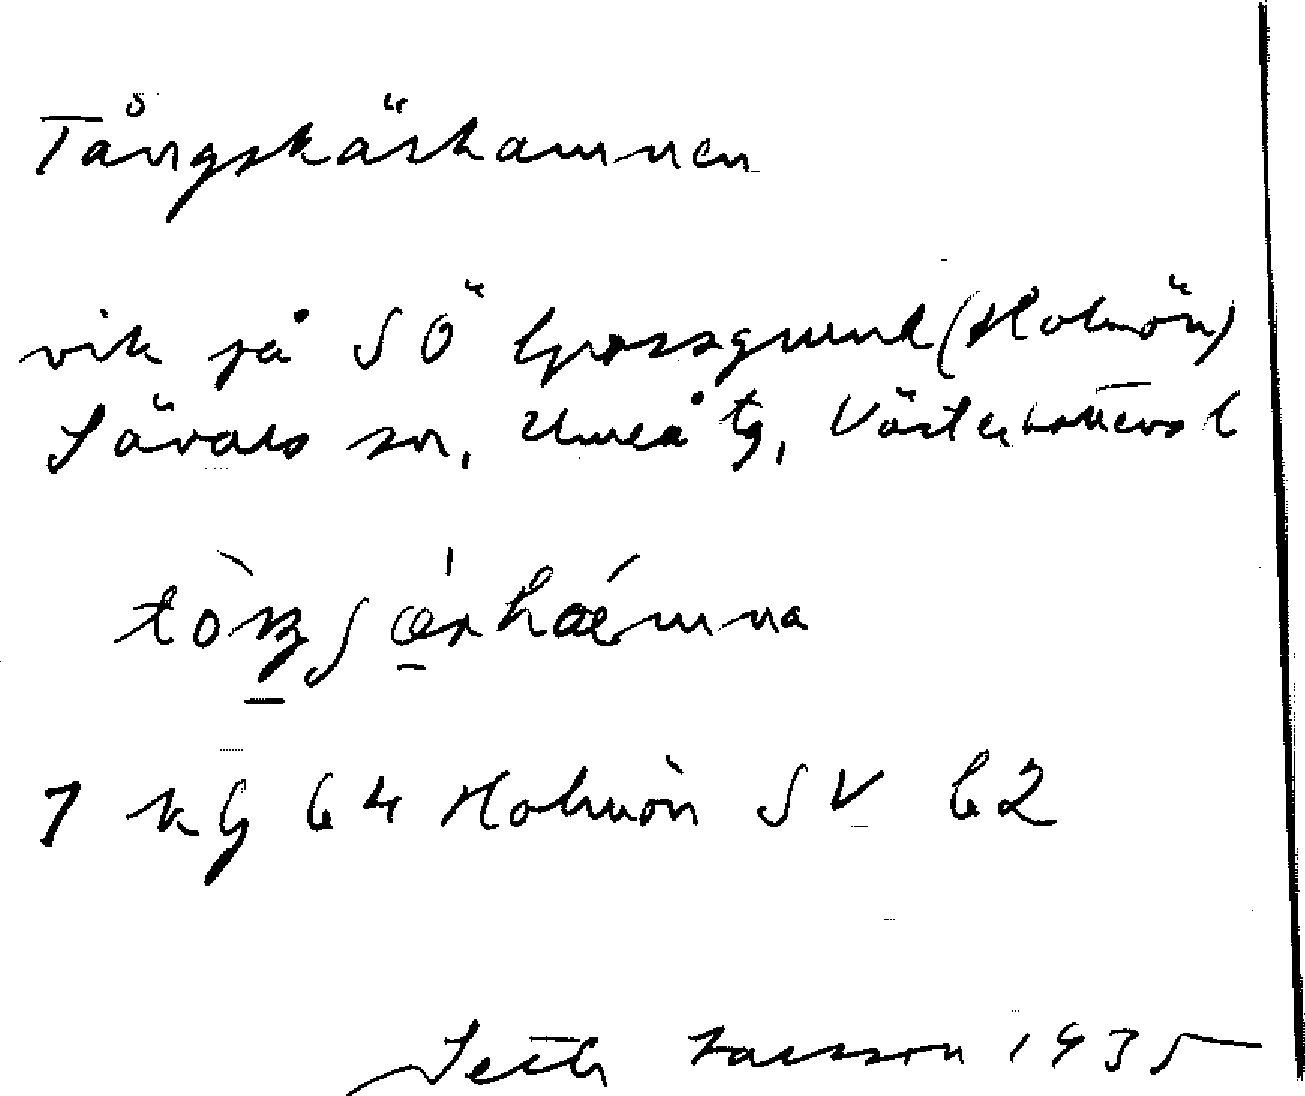 Tångskärhamnen
vik på SÖ Grossgrund (Holmön)
Sävars sn, Umeå tg, Västerbottens l
7 KG 64 Holmön SV 62
Seth Larsson 1935